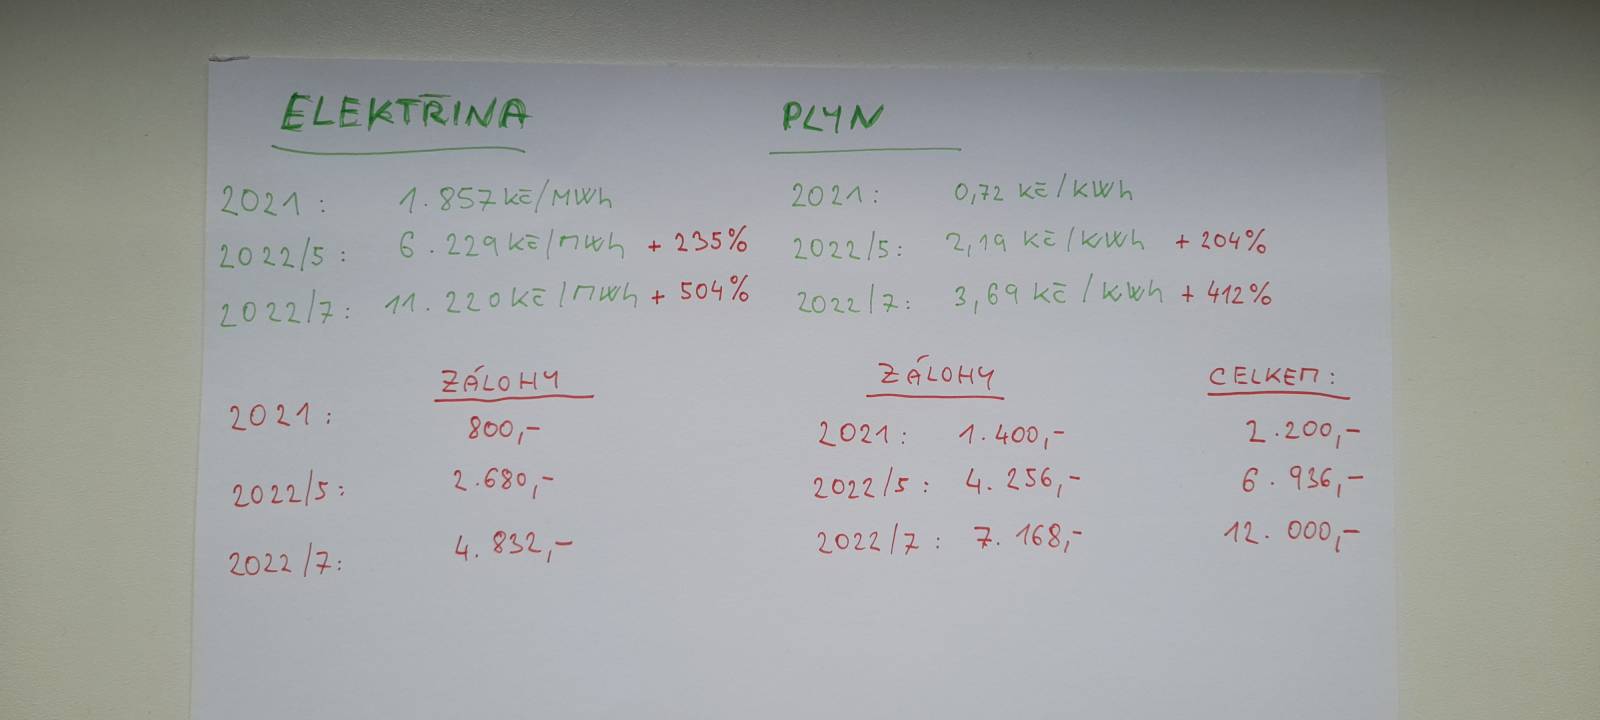 ELEKTŘINA PLYN
2021: 1.857 Kč/MWh 2021: 0,72 Kč/KWh
2022/5: 6.229 Kč/MWh + 235% 2022/5: 2,19 Kč/KWh + 204%
2022/7: 11.220 Kč/MWh + 504% 2022/7: 3,69 Kč/KWh + 412%
ZÁLOHY ZÁLOHY CELKEM:
2021: 800,- 2021: 1.400,- 2.200,-
2022/5: 2.680,- 2022/5: 4.256,- 6.936,-
2022/7: 4.832,- 2022/7: 7.168,- 12.000,-